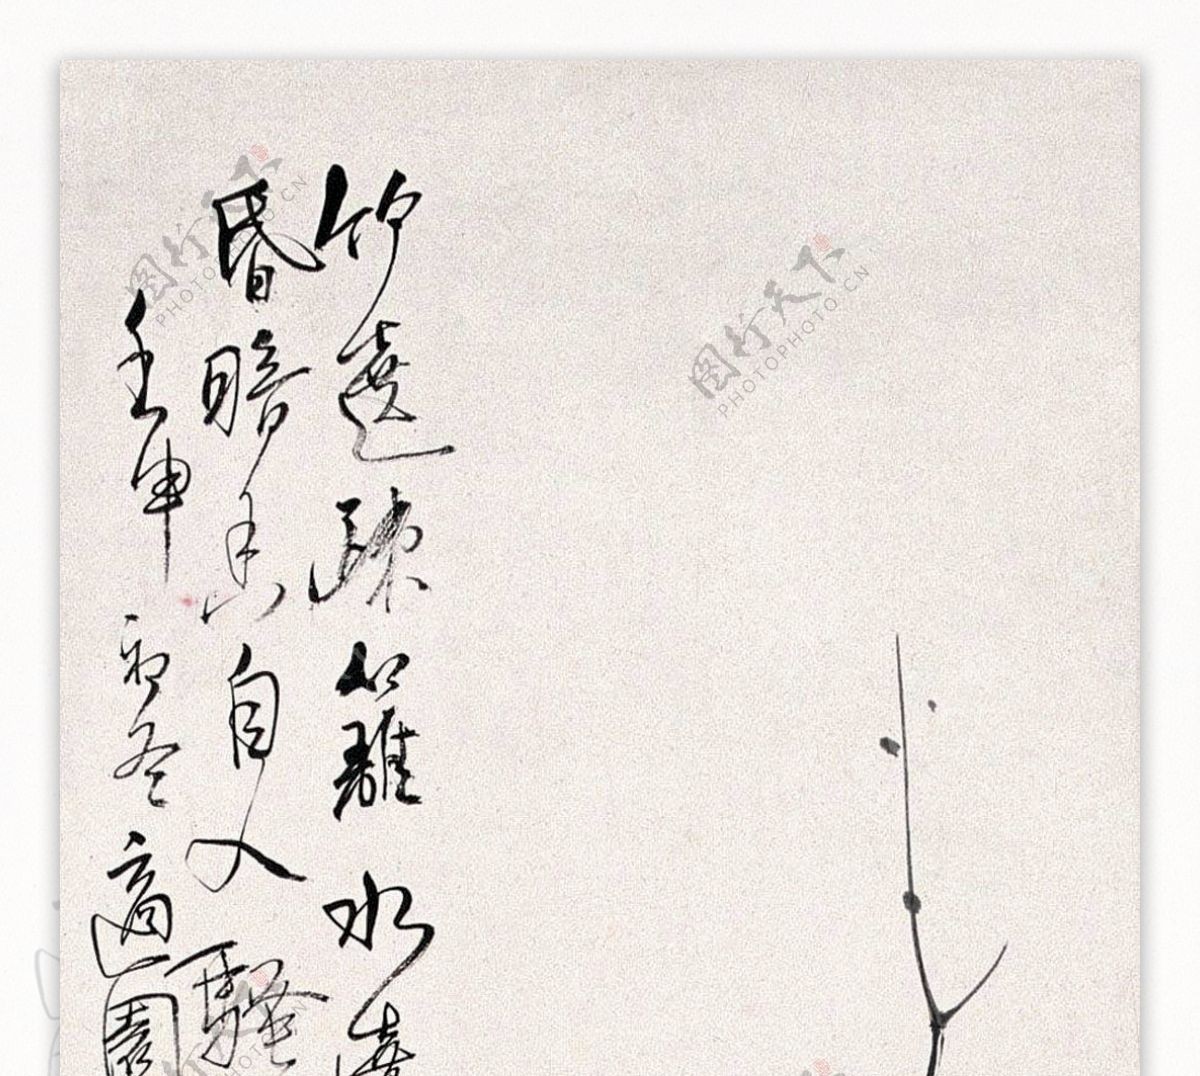 竹遶疎籬水遶
昏暗香自入騷
壬申初冬適園
图行天下
PHOTOPHOTO.CN
图行天下
PHOTOPHOTO.CN